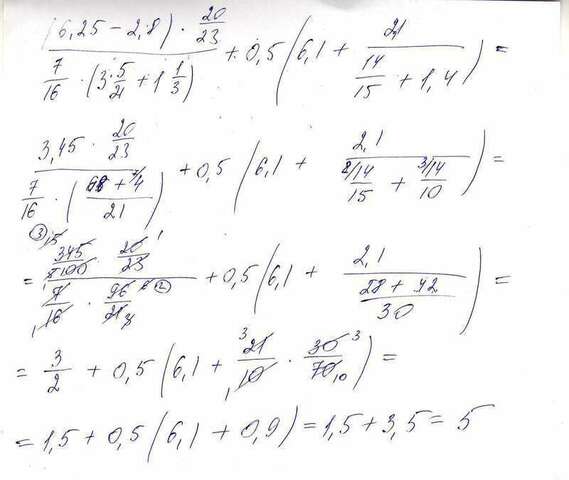 ((6,25 - 2,8) · 20/23) / (7/16 · (3 5/21 + 1 1/3)) + 0,5 (6,1 + 2,1 / (14/15 + 1,4)) =
(3,45 · 20/23) / (7/16 · ((68 + 4)/21)) + 0,5 (6,1 + 2,1 / (14/15 + 14/10)) =
= (345/100 · 20/23) / (7/16 · 96/21) + 0,5 (6,1 + 2,1 / ((28 + 42)/30)) =
= 3/2 + 0,5 (6,1 + 21/10 · 30/70) =
= 1,5 + 0,5 (6,1 + 0,9) = 1,5 + 3,5 = 5